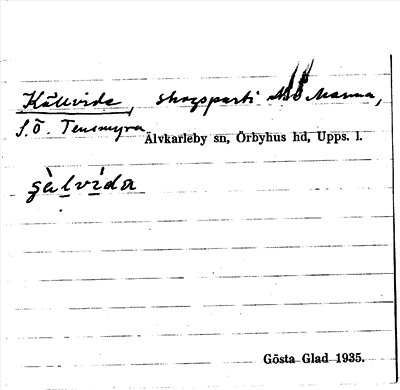 Källvida, skogsparti N.O Marma,
S.Ö. Tensmyra
Älvkarleby sn, Örbyhus hd, Upps. l.
Gösta Glad 1935.